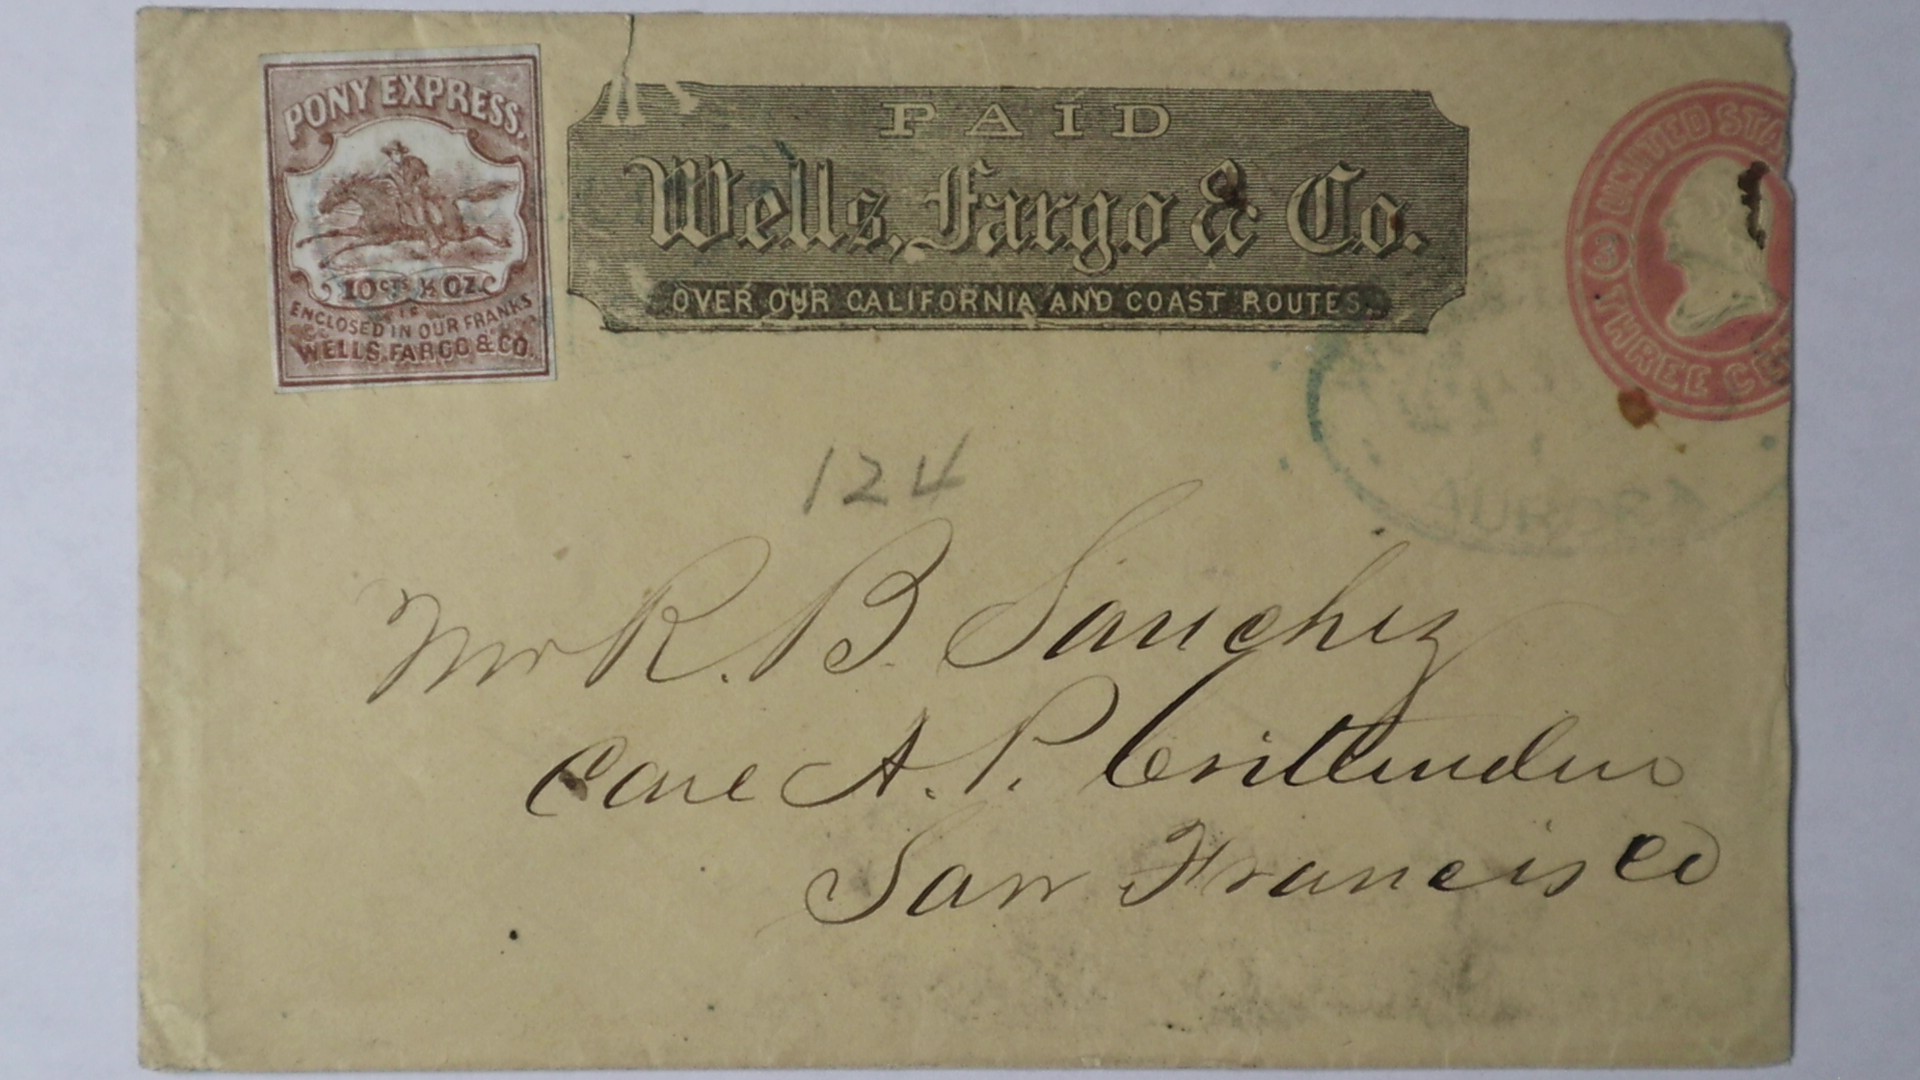 PONY EXPRESS.
10 CTS. ½ OZ.
IF
ENCLOSED IN OUR FRANKS
WELLS, FARGO & CO.
PAID
Wells, Fargo & Co.
OVER OUR CALIFORNIA AND COAST ROUTES.
UNITED STA
3
THREE CE
AURORA
124
Mr R. B. Sanchez
Care A. P. Crittenden
San Francisco